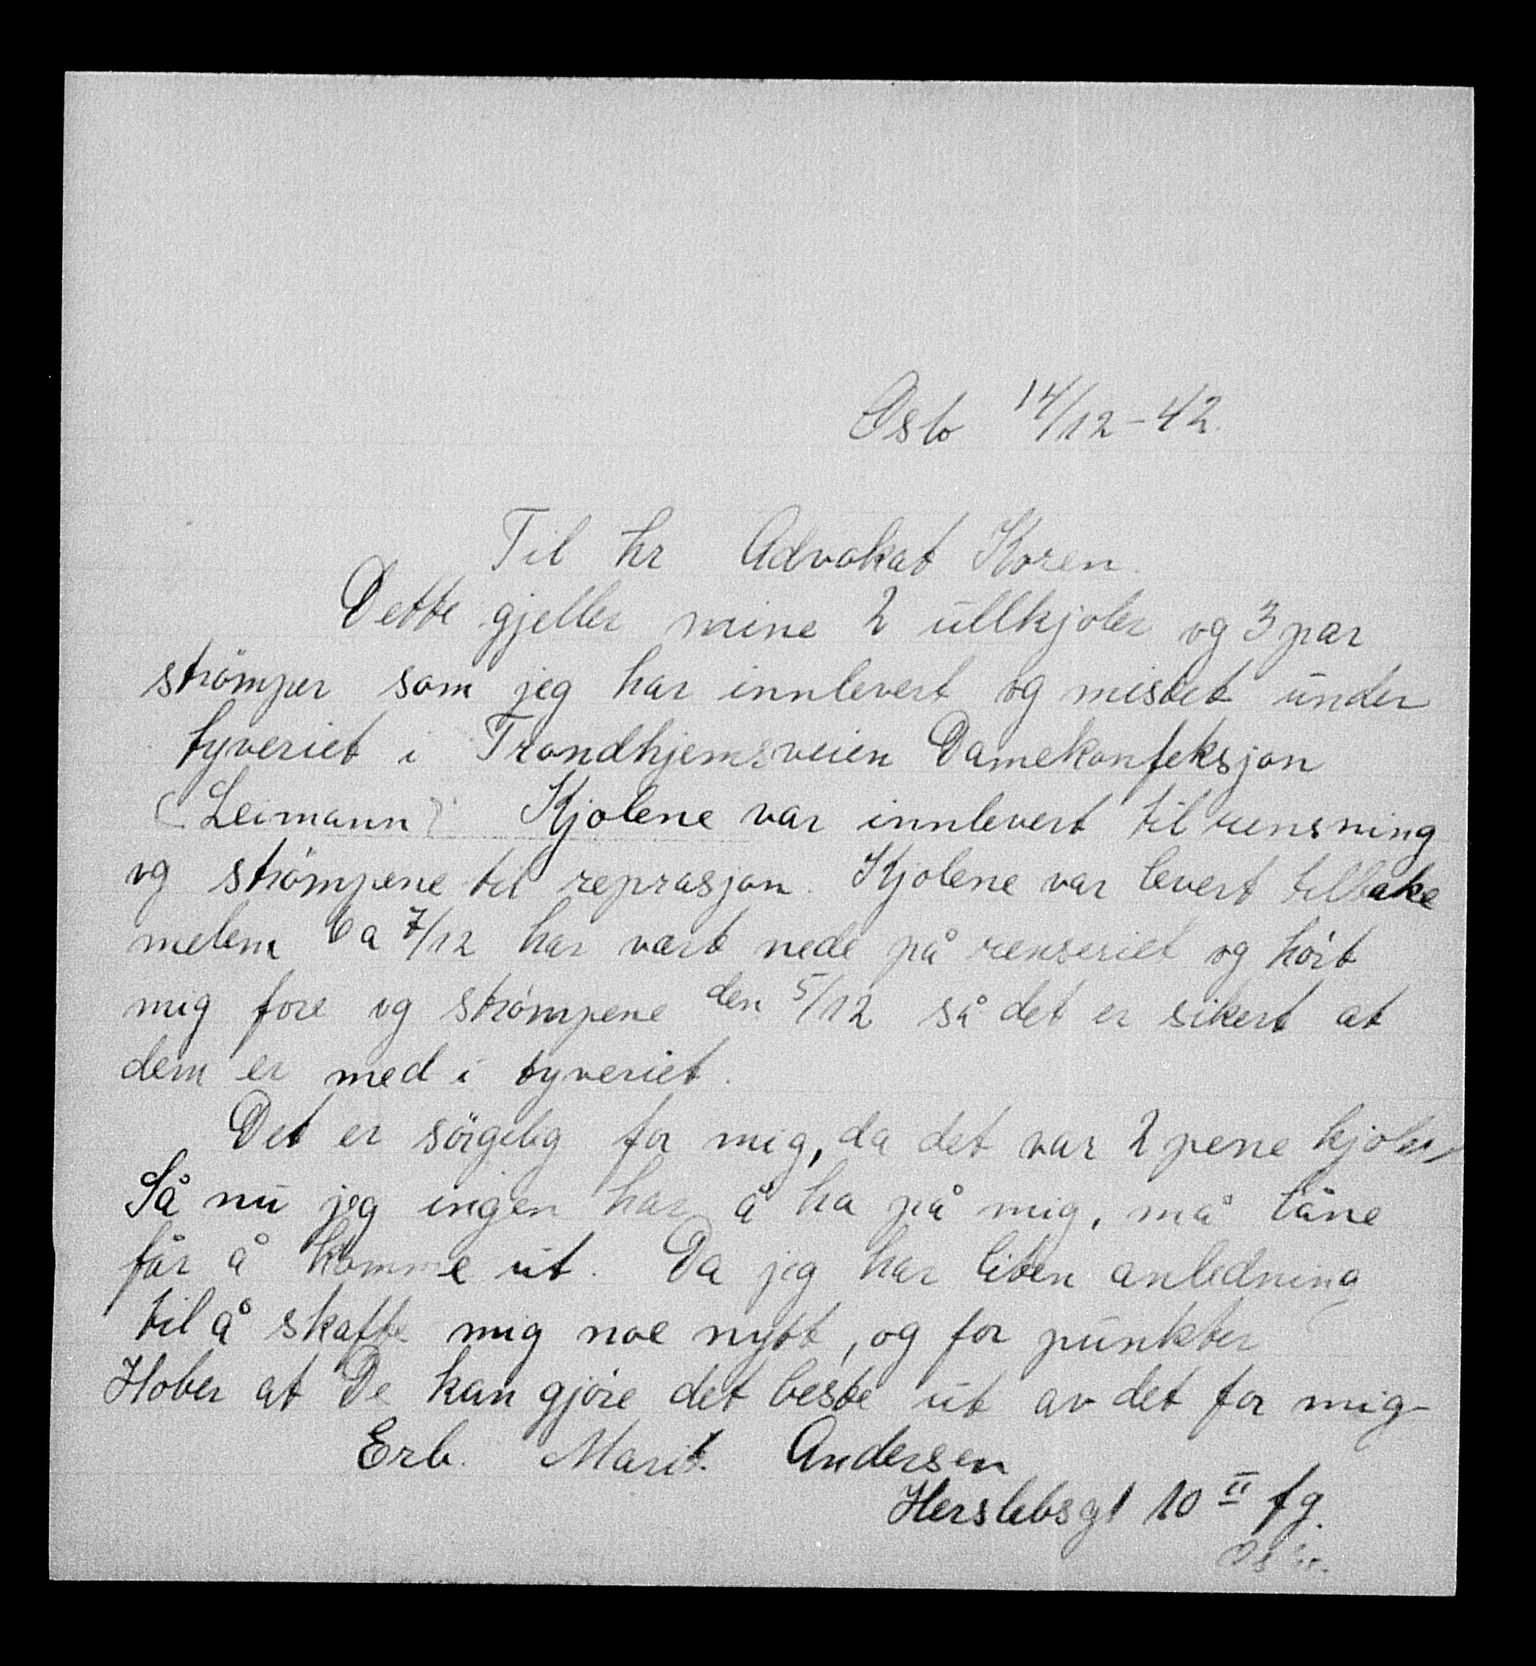 Oslo 14/12-42.
Til hr Advokat Koren.
Dette gjeller mine 2 ullkjoler og 3 par
strømper som jeg har innlevert og mistet under
tyveriet i Trondhjemsveien Damekonfeksjon
(Leimann) Kjolene var innlevert til rensning
og strømpene til reprasjon. Kjolene var levert tilbake
melem 6 a 7/12 har vært nede på renseriet og hørt
mig fore og strømpene den 5/12 så det er sikert at
dem er med i tyveriet.
Det er sørgelig for mig, da det var 2 pene kjoler,
Så nu jeg ingen har å ha på mig, må låne
får å komme ut. Da jeg har liten anledning
til å skaffe mig noe nytt, og for punkter
Hober at De kan gjøre det beste ut av det for mig-
Erb. Marit. Andersen
Herslebsgt 10 II fg.